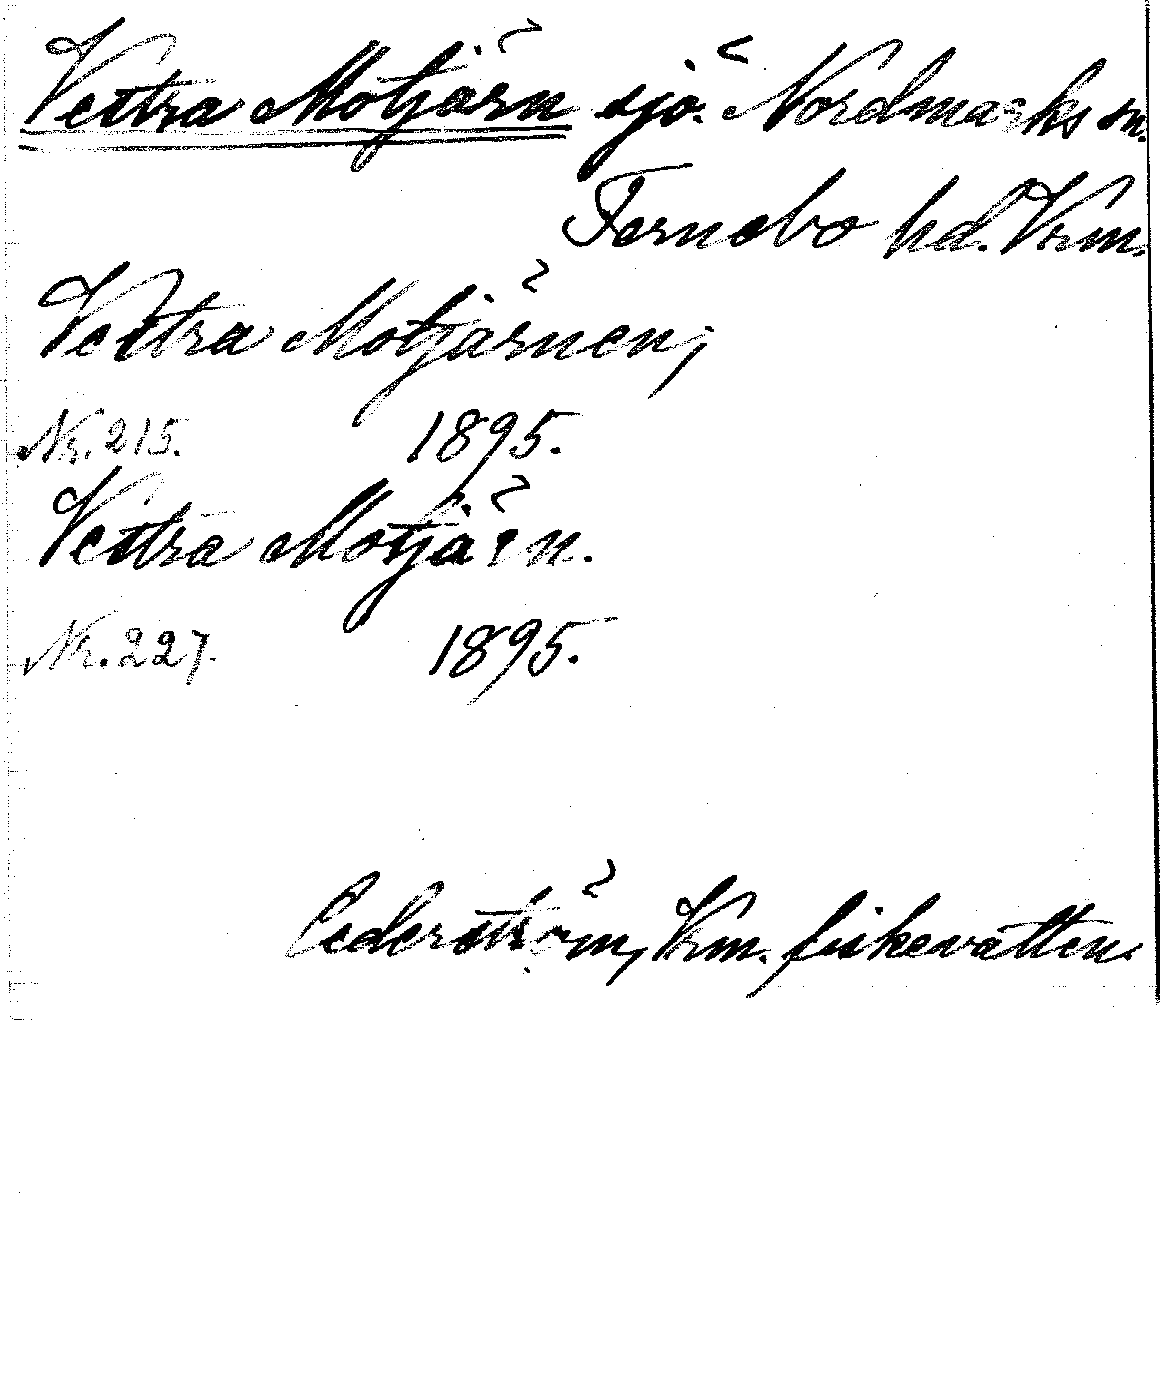 Vestra Motjärn sjö. Nordmarks sn.
Fernebo hd. Vrm.
Vestra Motjärnen,
Nr. 215. 1895.
Vestra Motjärn.
Nr. 227. 1895.
Cederström, Vrm. fiskevatten.